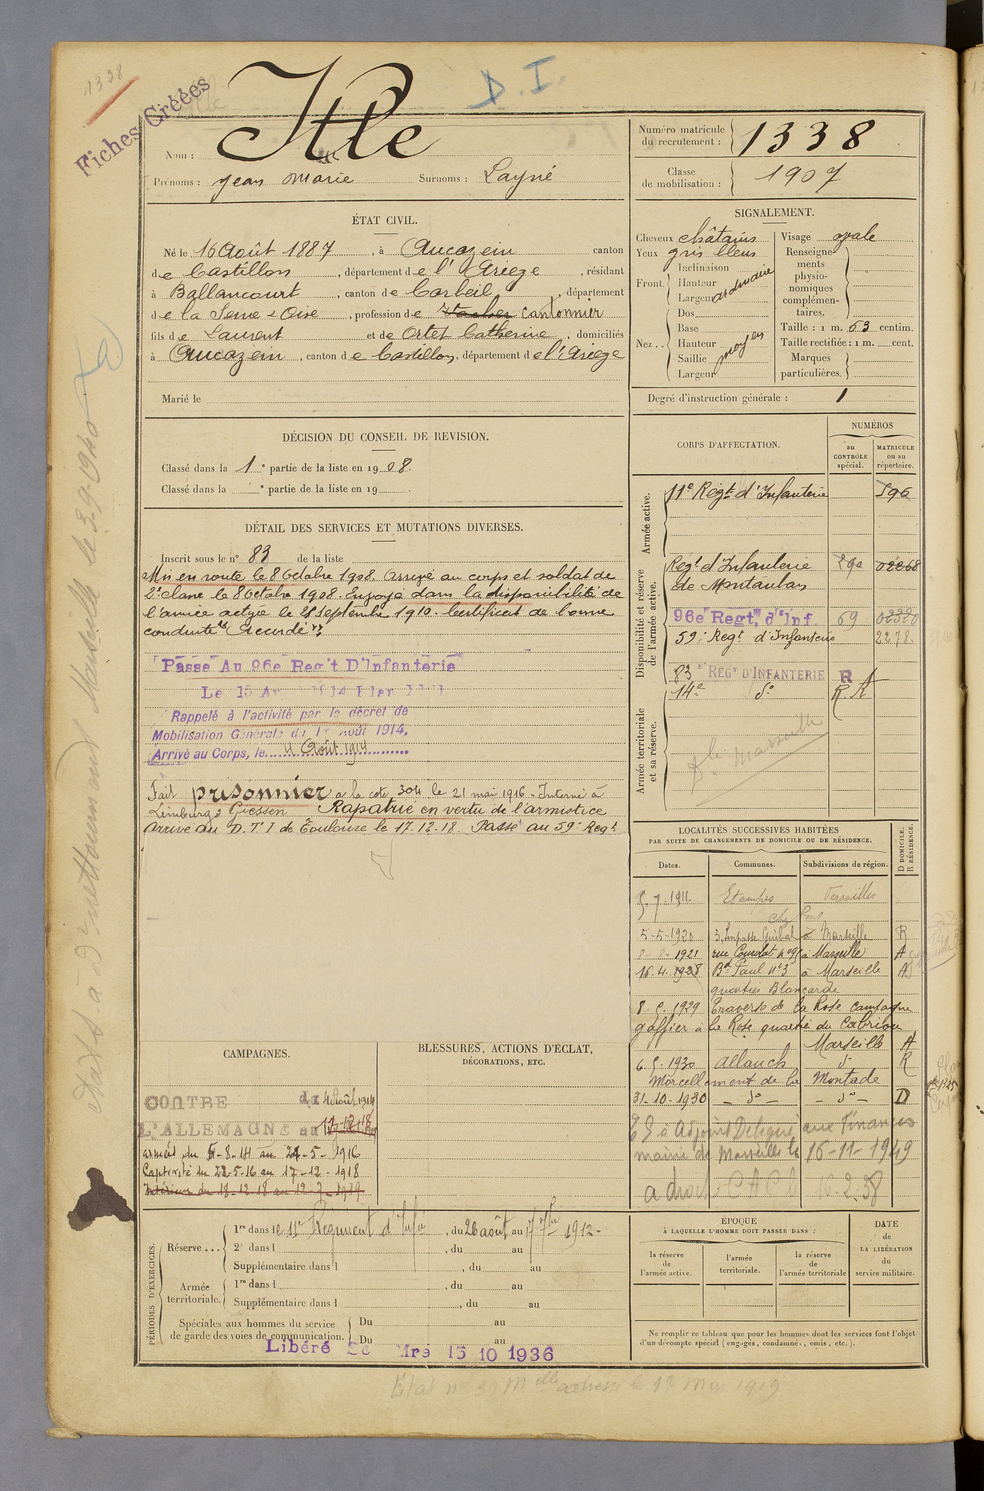 1338
Fiches Créées
D.I.
Nom : Itle
Prénoms : Jean Marie Surnoms : Layné
Numéro matricule du recrutement : 1338
Classe de mobilisation : 1907
ÉTAT CIVIL.
Né le 16 Août 1887, à Aucazein canton
de Castillon, département de l'Ariege, résidant
à Ballancourt, canton de Corbeil, département
de la Seine & Oise, profession de Vacher cantonnier
fils de Laurent et de Ortet Catherine, domiciliés
à Aucazein, canton de Castillon, département de l'Ariege
Marié le
SIGNALEMENT.
Cheveux châtains
Yeux gris bleus
Front Inclinaison
Hauteur
Largeur ordinaire
Nez Dos
Base
Hauteur moyen
Saillie
Largeur
Visage ovale
Renseignements physionomiques complémentaires,
Taille : 1 m. 63 centim.
Taille rectifiée : 1 m. cent.
Marques particulières.
Degré d'instruction générale : 1
DÉCISION DU CONSEIL DE REVISION.
Classé dans la 1e partie de la liste en 1908.
Classé dans la e partie de la liste en 19 .
DÉTAIL DES SERVICES ET MUTATIONS DIVERSES.
Inscrit sous le n° 83 de la liste
Mis en route le 8 Octobre 1908. Arrivé au corps et soldat de
2e classe le 8 Octobre 1908. Envoyé dans la disponibilité de
l'armée active le 25 Septembre 1910. Certificat de bonne
conduite "Accordé".
Passé Au 96e Reg't D'Infanterie
Le 15 Av 1914
Rappelé à l'activité par le décret de
Mobilisation Générale du 1er Août 1914,
Arrivé au Corps, le 4 Août 1914
Fait prisonnier à la cote 304 le 21 mai 1916 - Interné à
Limburg & Giessen Rapatrié en vertu de l'armistice
Arrivé au D.T.I de Toulouse le 17.12.18. Passé au 59e Regt
CORPS D'AFFECTATION.
NUMÉROS
au CONTRÔLE spécial.
MATRICULE ou au répertoire.
Armée active.
11e Régt d'Infanterie 596
Disponibilité et réserve de l'armée active.
Regt d'Infanterie de Montauban
96e Regt, d'Inf. 69 02320
59e Regt d'Infanterie 2278
83e REGt D'INFANTERIE R
14e do R.A
Armée territoriale et sa réserve.
Marseille
LOCALITÉS SUCCESSIVES HABITÉES
PAR SUITE DE CHANGEMENTS DE DOMICILE OU DE RÉSIDENCE.
Dates. Communes. Subdivisions de région. D DOMICILE. R RÉSIDENCE.
5.7.1911 Etampes Versailles
5-5-1920 3, Impasse Guibal à Marseille R
1921 rue Consolat à Marseille
16.4.1928 Bd Paul n°3 à Marseille
quartier Blancarde
1929 Traverse de la Rose campagne
à la Rose quartier du
Marseille
1930 Allauch do R
Morcellement de la Montade
31-10-1930 - do - - do - D
16-11-1949
10-2-38
CAMPAGNES.
CONTRE du 4 Août 1914
L'ALLEMAGNE au
armées du 5-8-14 au 21-5-1916
Captivité du 22-5-16 au 17-12-1918
Intérieur du 18-12-18 au
BLESSURES, ACTIONS D'ÉCLAT,
DÉCORATIONS, ETC.
PÉRIODES D'EXERCICES.
Réserve 1re dans le 11e Régiment d'Infie, du 26 août au 7 7bre 1912
2e dans l , du au
Supplémentaire dans l , du au
Armée territoriale. 1re dans l , du au
Supplémentaire dans l , du au
Spéciales aux hommes du service de garde des voies de communication. Du au
Du au
Libéré 15 10 1936
ÉPOQUE
À LAQUELLE L'HOMME DOIT PASSER DANS :
la réserve de l'armée active.
l'armée territoriale.
la réserve de l'armée territoriale
DATE de LA LIBÉRATION du service militaire.
Ne remplir ce tableau que pour les hommes dont les services font l'objet
d'un décompte spécial (engagés, condamnés, omis, etc.).